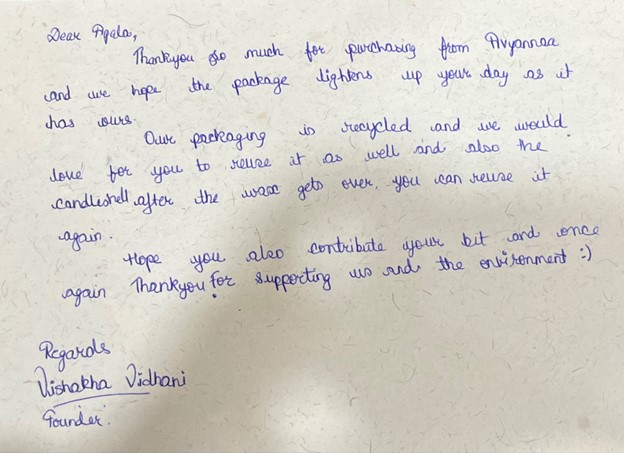 Dear Agala,
Thankyou so much for purchasing from Avyannaa
and we hope the package lightens up your day as it
has ours.
Our packaging is recycled and we would
love for you to reuse it as well and also the
candleshell after the wax gets over, you can reuse it
again.
Hope you also contribute your bit and once
again Thankyou for supporting us and the environment :)
Regards
Vishakha Vidhani
Founder.